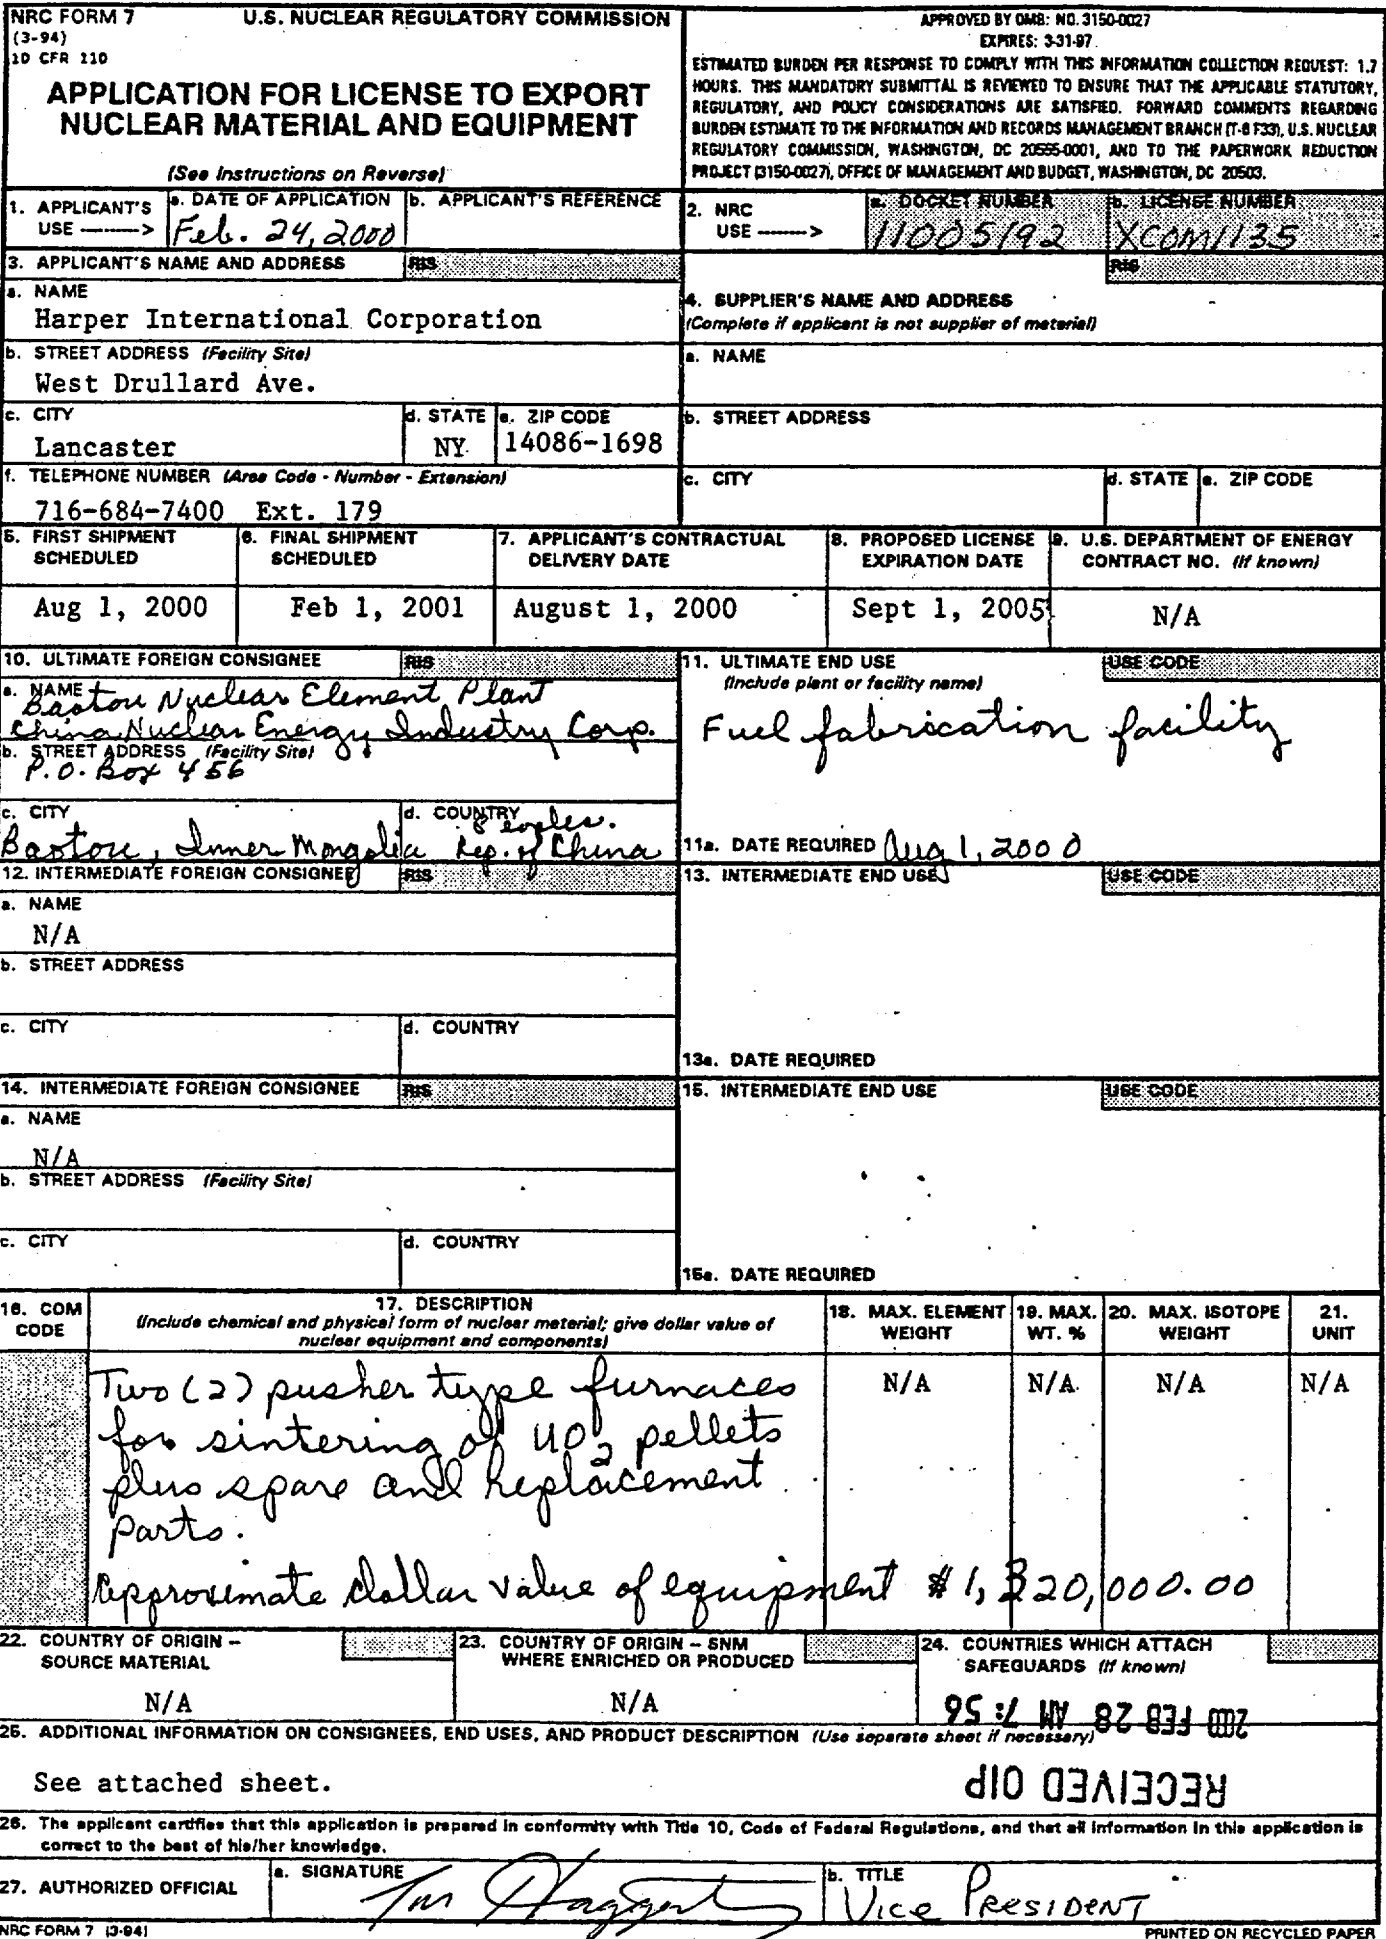 NRC FORM 7
(3-94)
10 CFR 110
U.S. NUCLEAR REGULATORY COMMISSION
APPLICATION FOR LICENSE TO EXPORT
NUCLEAR MATERIAL AND EQUIPMENT
(See Instructions on Reverse)
APPROVED BY OMB: NO. 3150-0027
EXPIRES: 3-31-97
ESTIMATED BURDEN PER RESPONSE TO COMPLY WITH THIS INFORMATION COLLECTION REQUEST: 1.7
HOURS. THIS MANDATORY SUBMITTAL IS REVIEWED TO ENSURE THAT THE APPLICABLE STATUTORY,
REGULATORY, AND POLICY CONSIDERATIONS ARE SATISFIED. FORWARD COMMENTS REGARDING
BURDEN ESTIMATE TO THE INFORMATION AND RECORDS MANAGEMENT BRANCH (T-6 F33), U.S. NUCLEAR
REGULATORY COMMISSION, WASHINGTON, DC 20555-0001, AND TO THE PAPERWORK REDUCTION
PROJECT (3150-0027), OFFICE OF MANAGEMENT AND BUDGET, WASHINGTON, DC 20503.
1. APPLICANT'S
USE -------->
a. DATE OF APPLICATION
Feb. 24, 2000
b. APPLICANT'S REFERENCE
2. NRC
USE ------->
a. DOCKET NUMBER
11005192
b. LICENSE NUMBER
XCOM1135
3. APPLICANT'S NAME AND ADDRESS
RIS
RIS
a. NAME
Harper International Corporation
4. SUPPLIER'S NAME AND ADDRESS
(Complete if applicant is not supplier of material)
b. STREET ADDRESS (Facility Site)
West Drullard Ave.
a. NAME
c. CITY
Lancaster
d. STATE
NY
e. ZIP CODE
14086-1698
b. STREET ADDRESS
f. TELEPHONE NUMBER (Area Code - Number - Extension)
716-684-7400 Ext. 179
c. CITY
d. STATE
e. ZIP CODE
5. FIRST SHIPMENT
SCHEDULED
Aug 1, 2000
6. FINAL SHIPMENT
SCHEDULED
Feb 1, 2001
7. APPLICANT'S CONTRACTUAL
DELIVERY DATE
August 1, 2000
8. PROPOSED LICENSE
EXPIRATION DATE
Sept 1, 2005
9. U.S. DEPARTMENT OF ENERGY
CONTRACT NO. (If known)
N/A
10. ULTIMATE FOREIGN CONSIGNEE
RIS
a. NAME
Baotou Nuclear Element Plant
China Nuclear Energy Industry Corp.
b. STREET ADDRESS (Facility Site)
P.O. Box 456
c. CITY
Baotou, Inner Mongolia
d. COUNTRY
Peoples.
Rep. of China
11. ULTIMATE END USE
(Include plant or facility name)
USE CODE
Fuel fabrication facility
11a. DATE REQUIRED
Aug 1, 2000
12. INTERMEDIATE FOREIGN CONSIGNEE
RIS
a. NAME
N/A
b. STREET ADDRESS
c. CITY
d. COUNTRY
13. INTERMEDIATE END USE
USE CODE
13a. DATE REQUIRED
14. INTERMEDIATE FOREIGN CONSIGNEE
RIS
a. NAME
N/A
b. STREET ADDRESS (Facility Site)
c. CITY
d. COUNTRY
15. INTERMEDIATE END USE
USE CODE
15a. DATE REQUIRED
16. COM
CODE
17. DESCRIPTION
(Include chemical and physical form of nuclear material; give dollar value of
nuclear equipment and components)
18. MAX. ELEMENT
WEIGHT
19. MAX.
WT. %
20. MAX. ISOTOPE
WEIGHT
21.
UNIT
Two (2) pusher type furnaces
for sintering of UO2 pellets
plus spare and replacement
parts.
N/A
N/A
N/A
N/A
Approximate dollar value of equipment $1,320,000.00
22. COUNTRY OF ORIGIN –
SOURCE MATERIAL
N/A
23. COUNTRY OF ORIGIN – SNM
WHERE ENRICHED OR PRODUCED
N/A
24. COUNTRIES WHICH ATTACH
SAFEGUARDS (If known)
2000 FEB 28 AM 7:56
25. ADDITIONAL INFORMATION ON CONSIGNEES, END USES, AND PRODUCT DESCRIPTION (Use separate sheet if necessary)
See attached sheet.
RECEIVED OIP
26. The applicant certifies that this application is prepared in conformity with Title 10, Code of Federal Regulations, and that all information in this application is
correct to the best of his/her knowledge.
27. AUTHORIZED OFFICIAL
a. SIGNATURE
b. TITLE
Vice PRESIDENT
NRC FORM 7 (3-94)
PRINTED ON RECYCLED PAPER